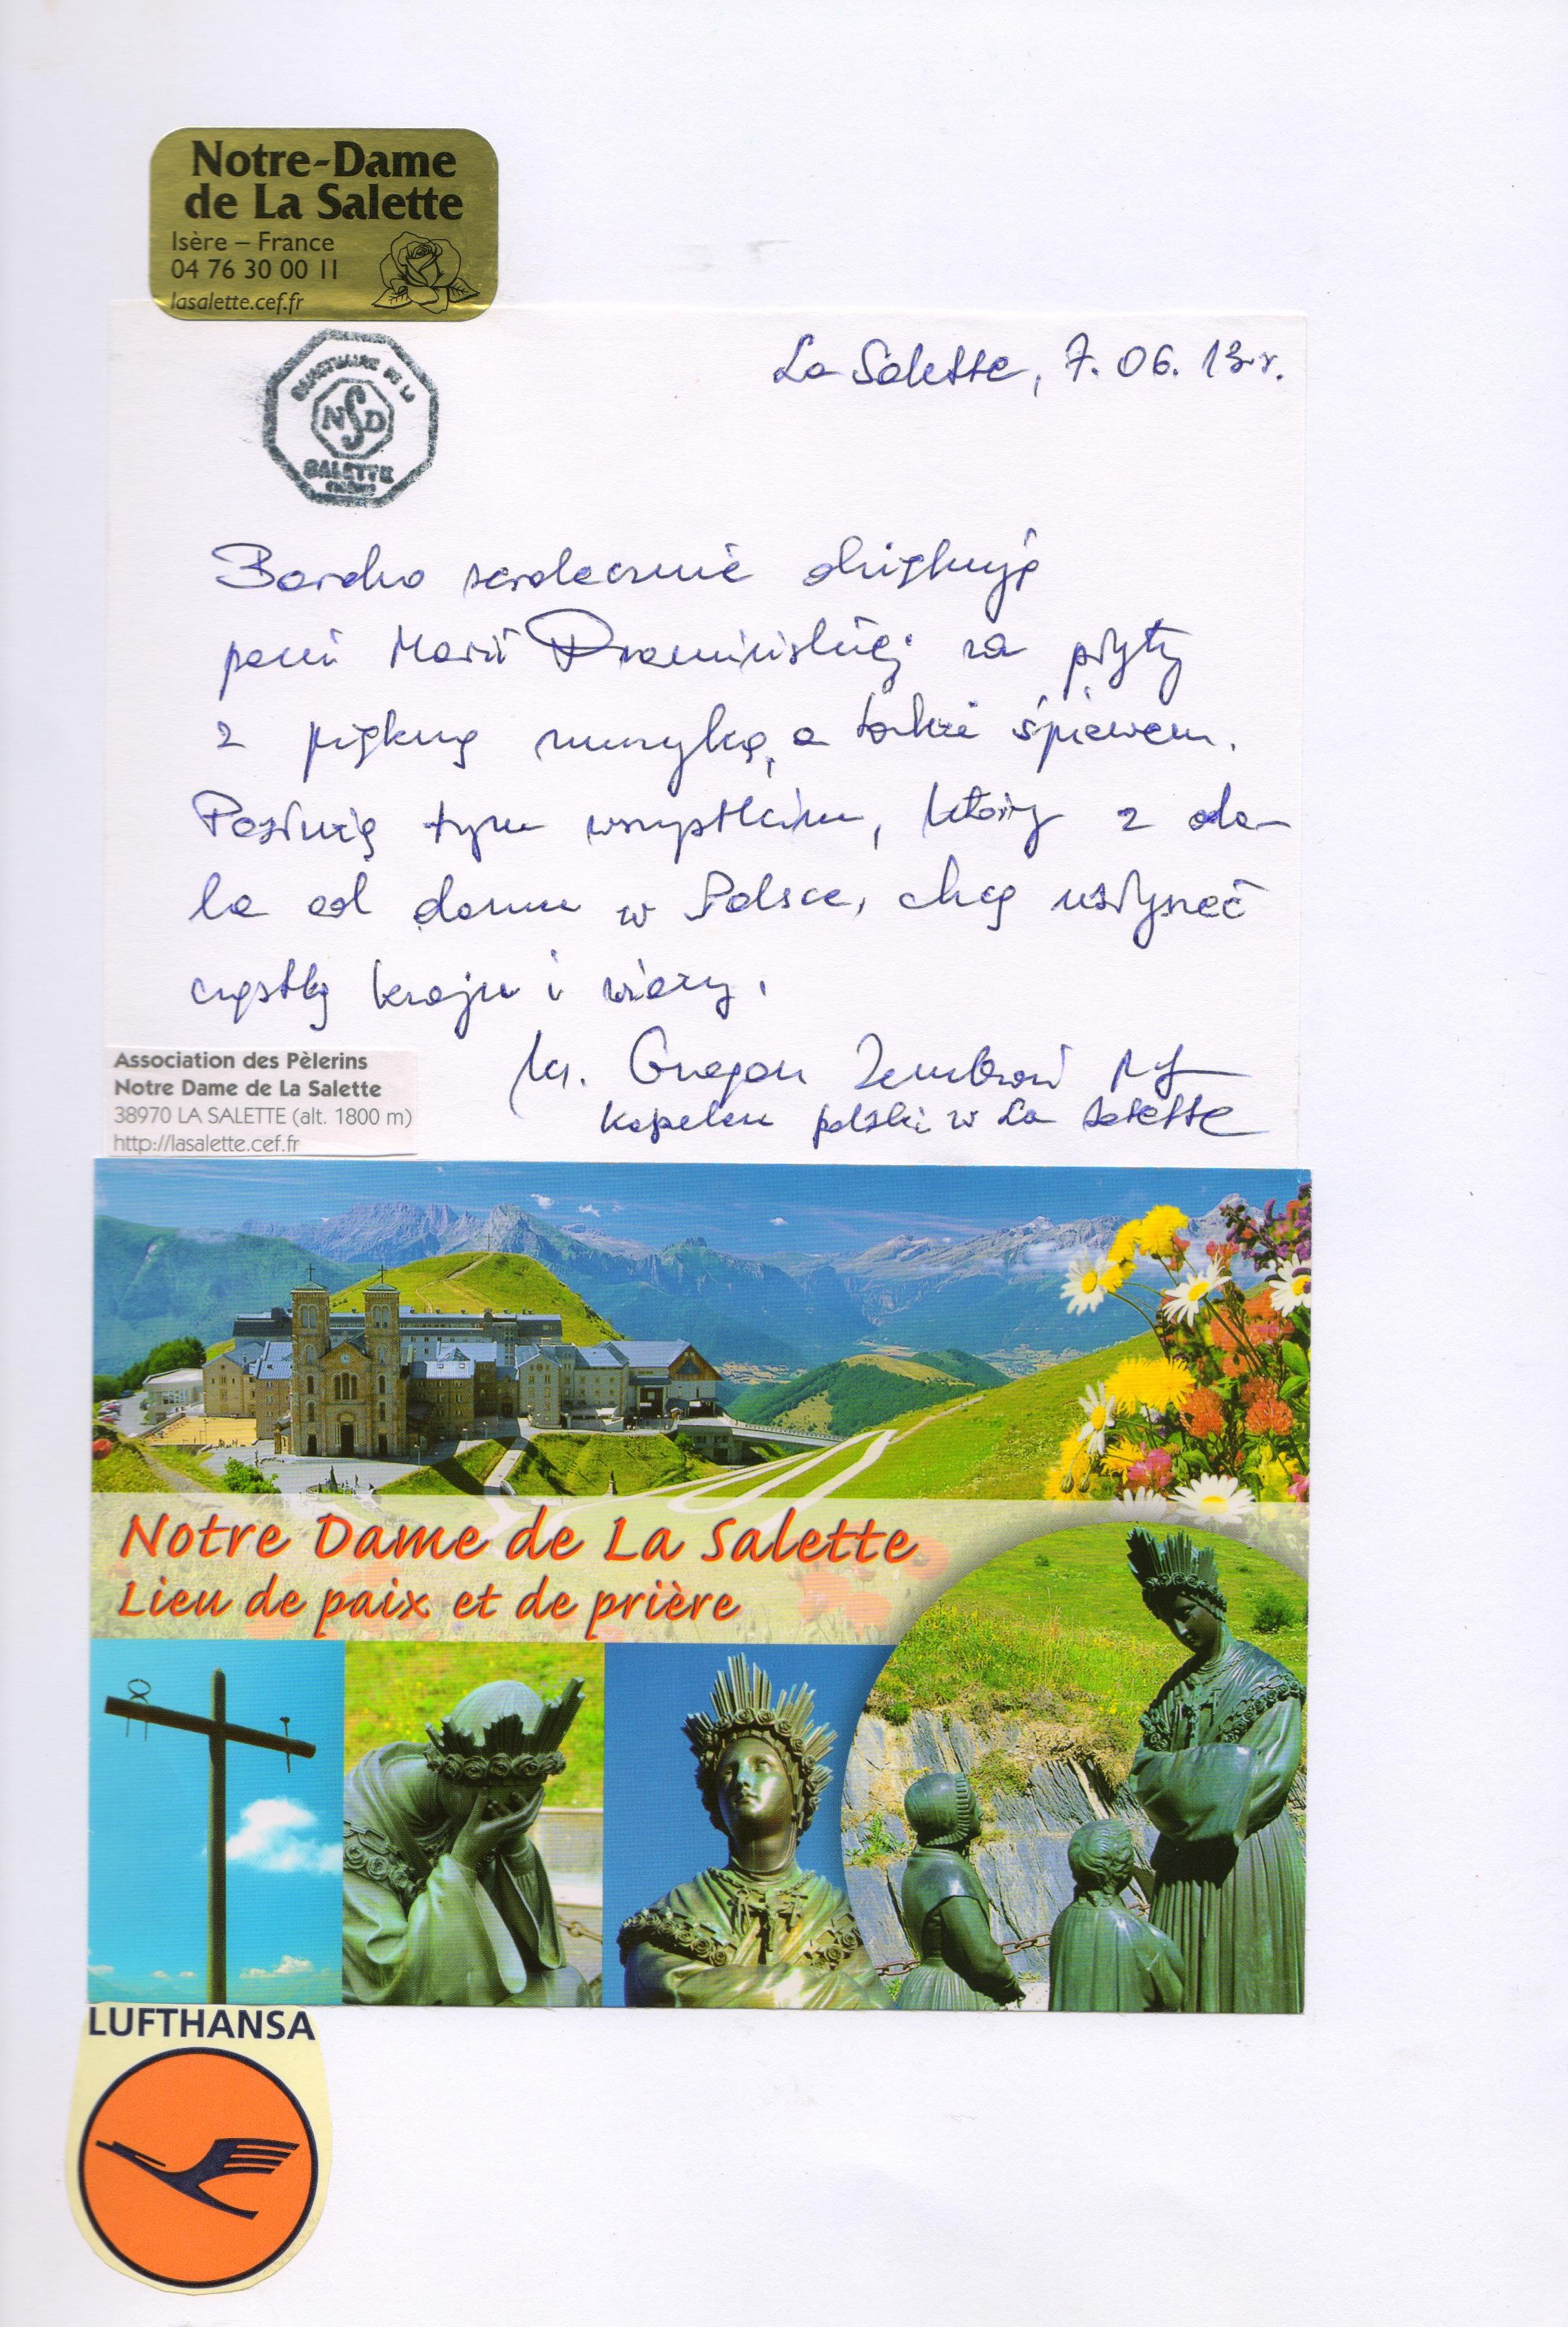 Notre-Dame
de La Salette
Isère – France
04 76 30 00 11
lasalette.cef.fr
SANCTUAIRE DE LA
NSD
SALETTE
La Salette, 7.06.13r.
Bardzo serdecznie dziękuję
pani Marii za płyty
z piękną muzyką, a także śpiewem.
Posłużą tym wszystkim, którzy z da-
la od domu w Polsce, chcą usłyszeć
cząstkę kraju i wiary.
Association des Pèlerins
Notre Dame de La Salette
38970 LA SALETTE (alt. 1800 m)
http://lasalette.cef.fr
ks. Grzegorz
Kapelan polski w La Salette
Notre Dame de La Salette
Lieu de paix et de prière
LUFTHANSA